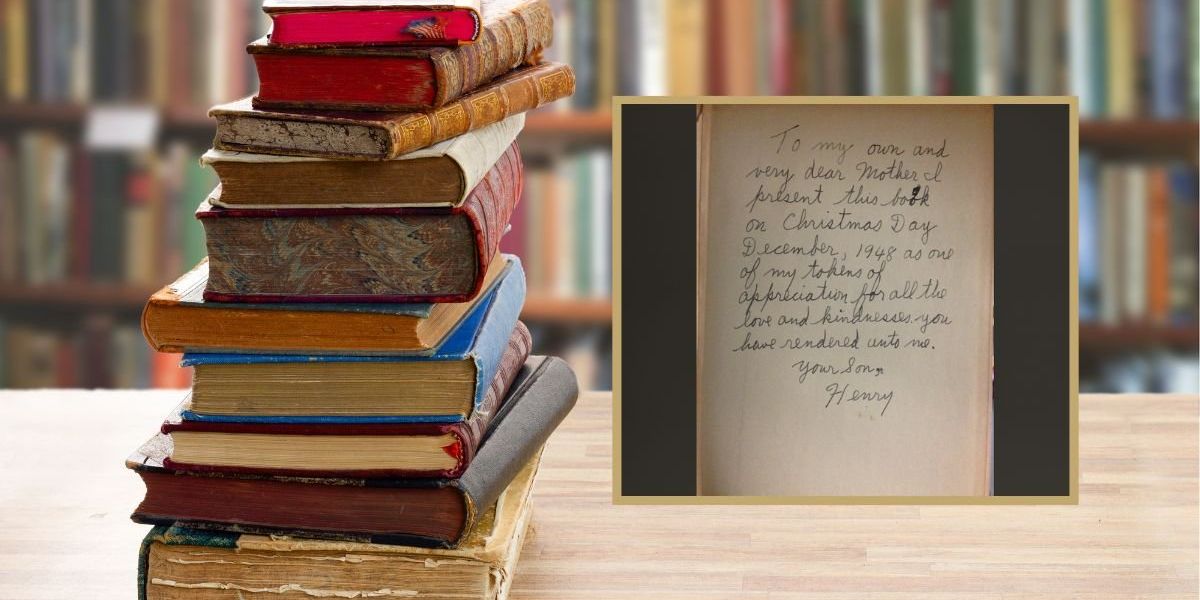 To my own and
very dear Mother I
present this book
on Christmas Day
December, 1948 as one
of my tokens of
appreciation for all the
love and kindnesses you
have rendered unto me.
Your Son,
Henry